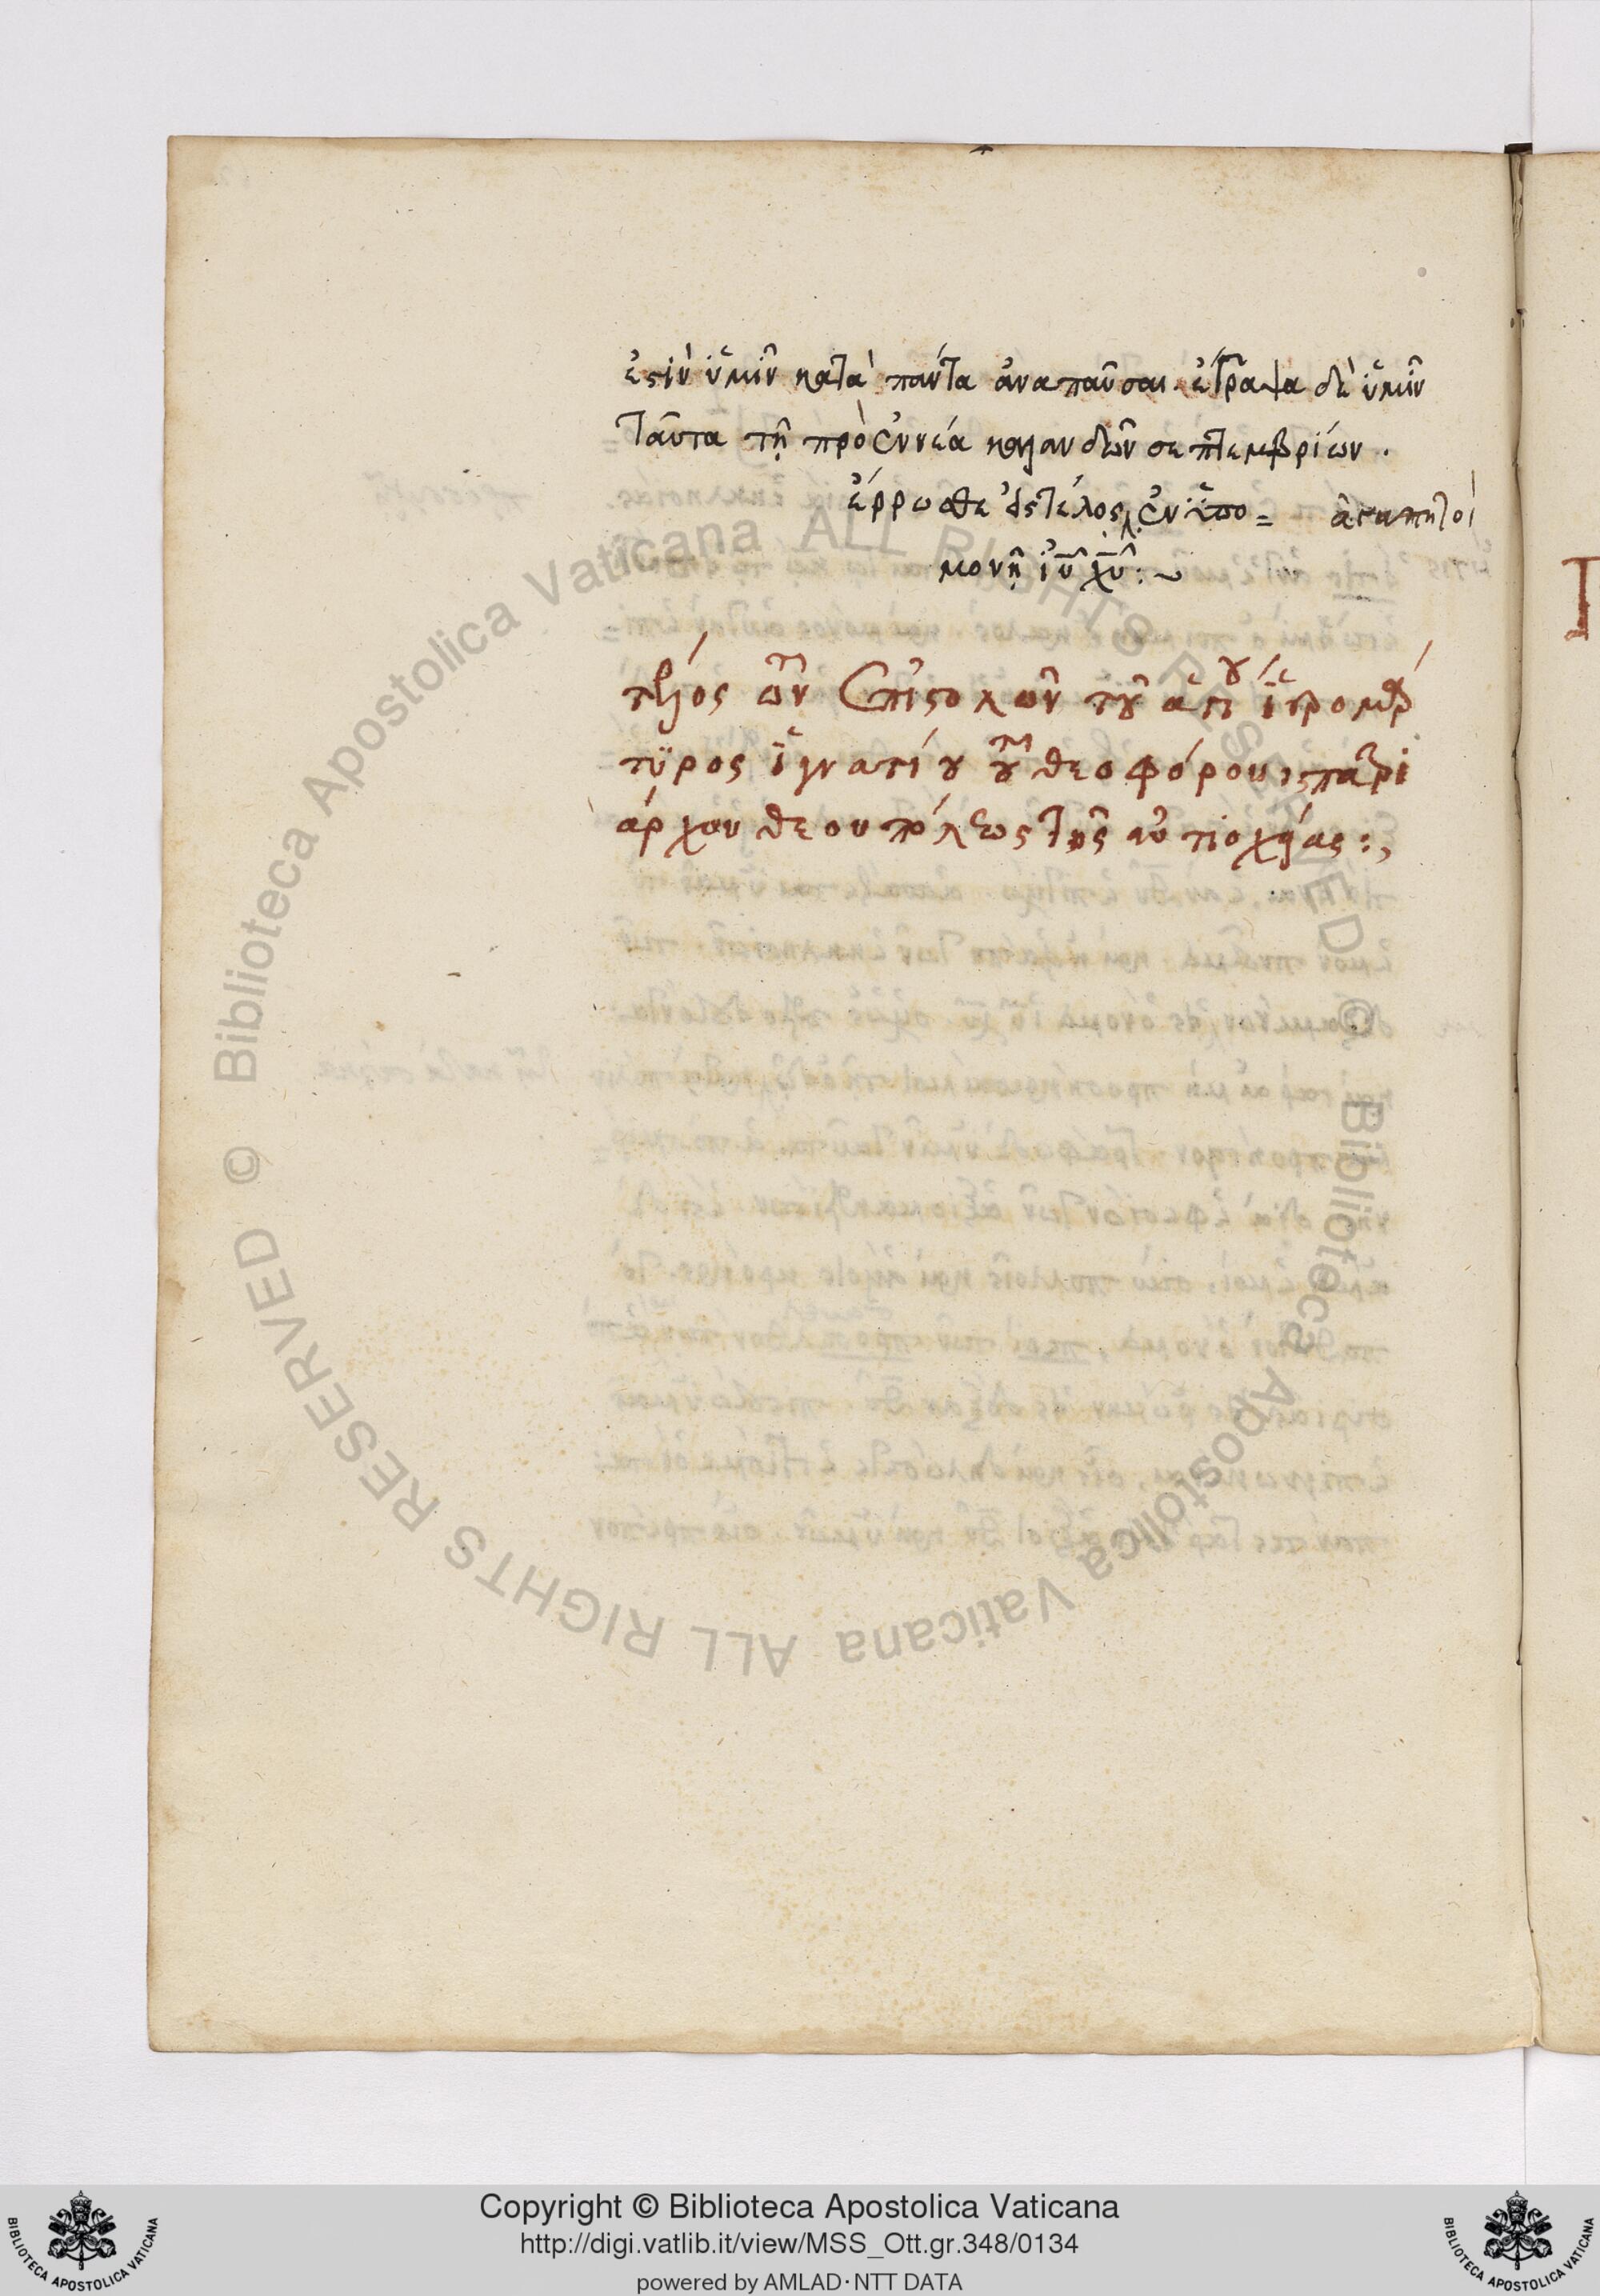 ἐστὶν ὑμῖν κατὰ πάντα ἀναπαῦσαι. ἔγραψα δὲ ὑμῖν
ταῦτα τῇ πρὸ ἐννέα καλανδῶν σεπτεμβρίων.
ἔρρωσθε εἰς τέλος, ἐν ὑπο=
ἀγαπητοί
μονῇ ἰῦ χῦ:~
τέλος τῶν ἐπιστολῶν τοῦ ἁγίου ἱερομάρ
τυρος ἰγνατίου τοῦ θεοφόρου πατρι
άρχου θεουπόλεως τῆς ἀντιοχείας:,
Copyright © Biblioteca Apostolica Vaticana
http://digi.vatlib.it/view/MSS_Ott.gr.348/0134
powered by AMLAD·NTT DATA
BIBLIOTECA APOSTOLICA VATICANA
BIBLIOTECA APOSTOLICA VATICANA
© Biblioteca Apostolica Vaticana ALL RIGHTS RESERVED
© Biblioteca Apostolica Vaticana ALL RIGHTS RESERVED